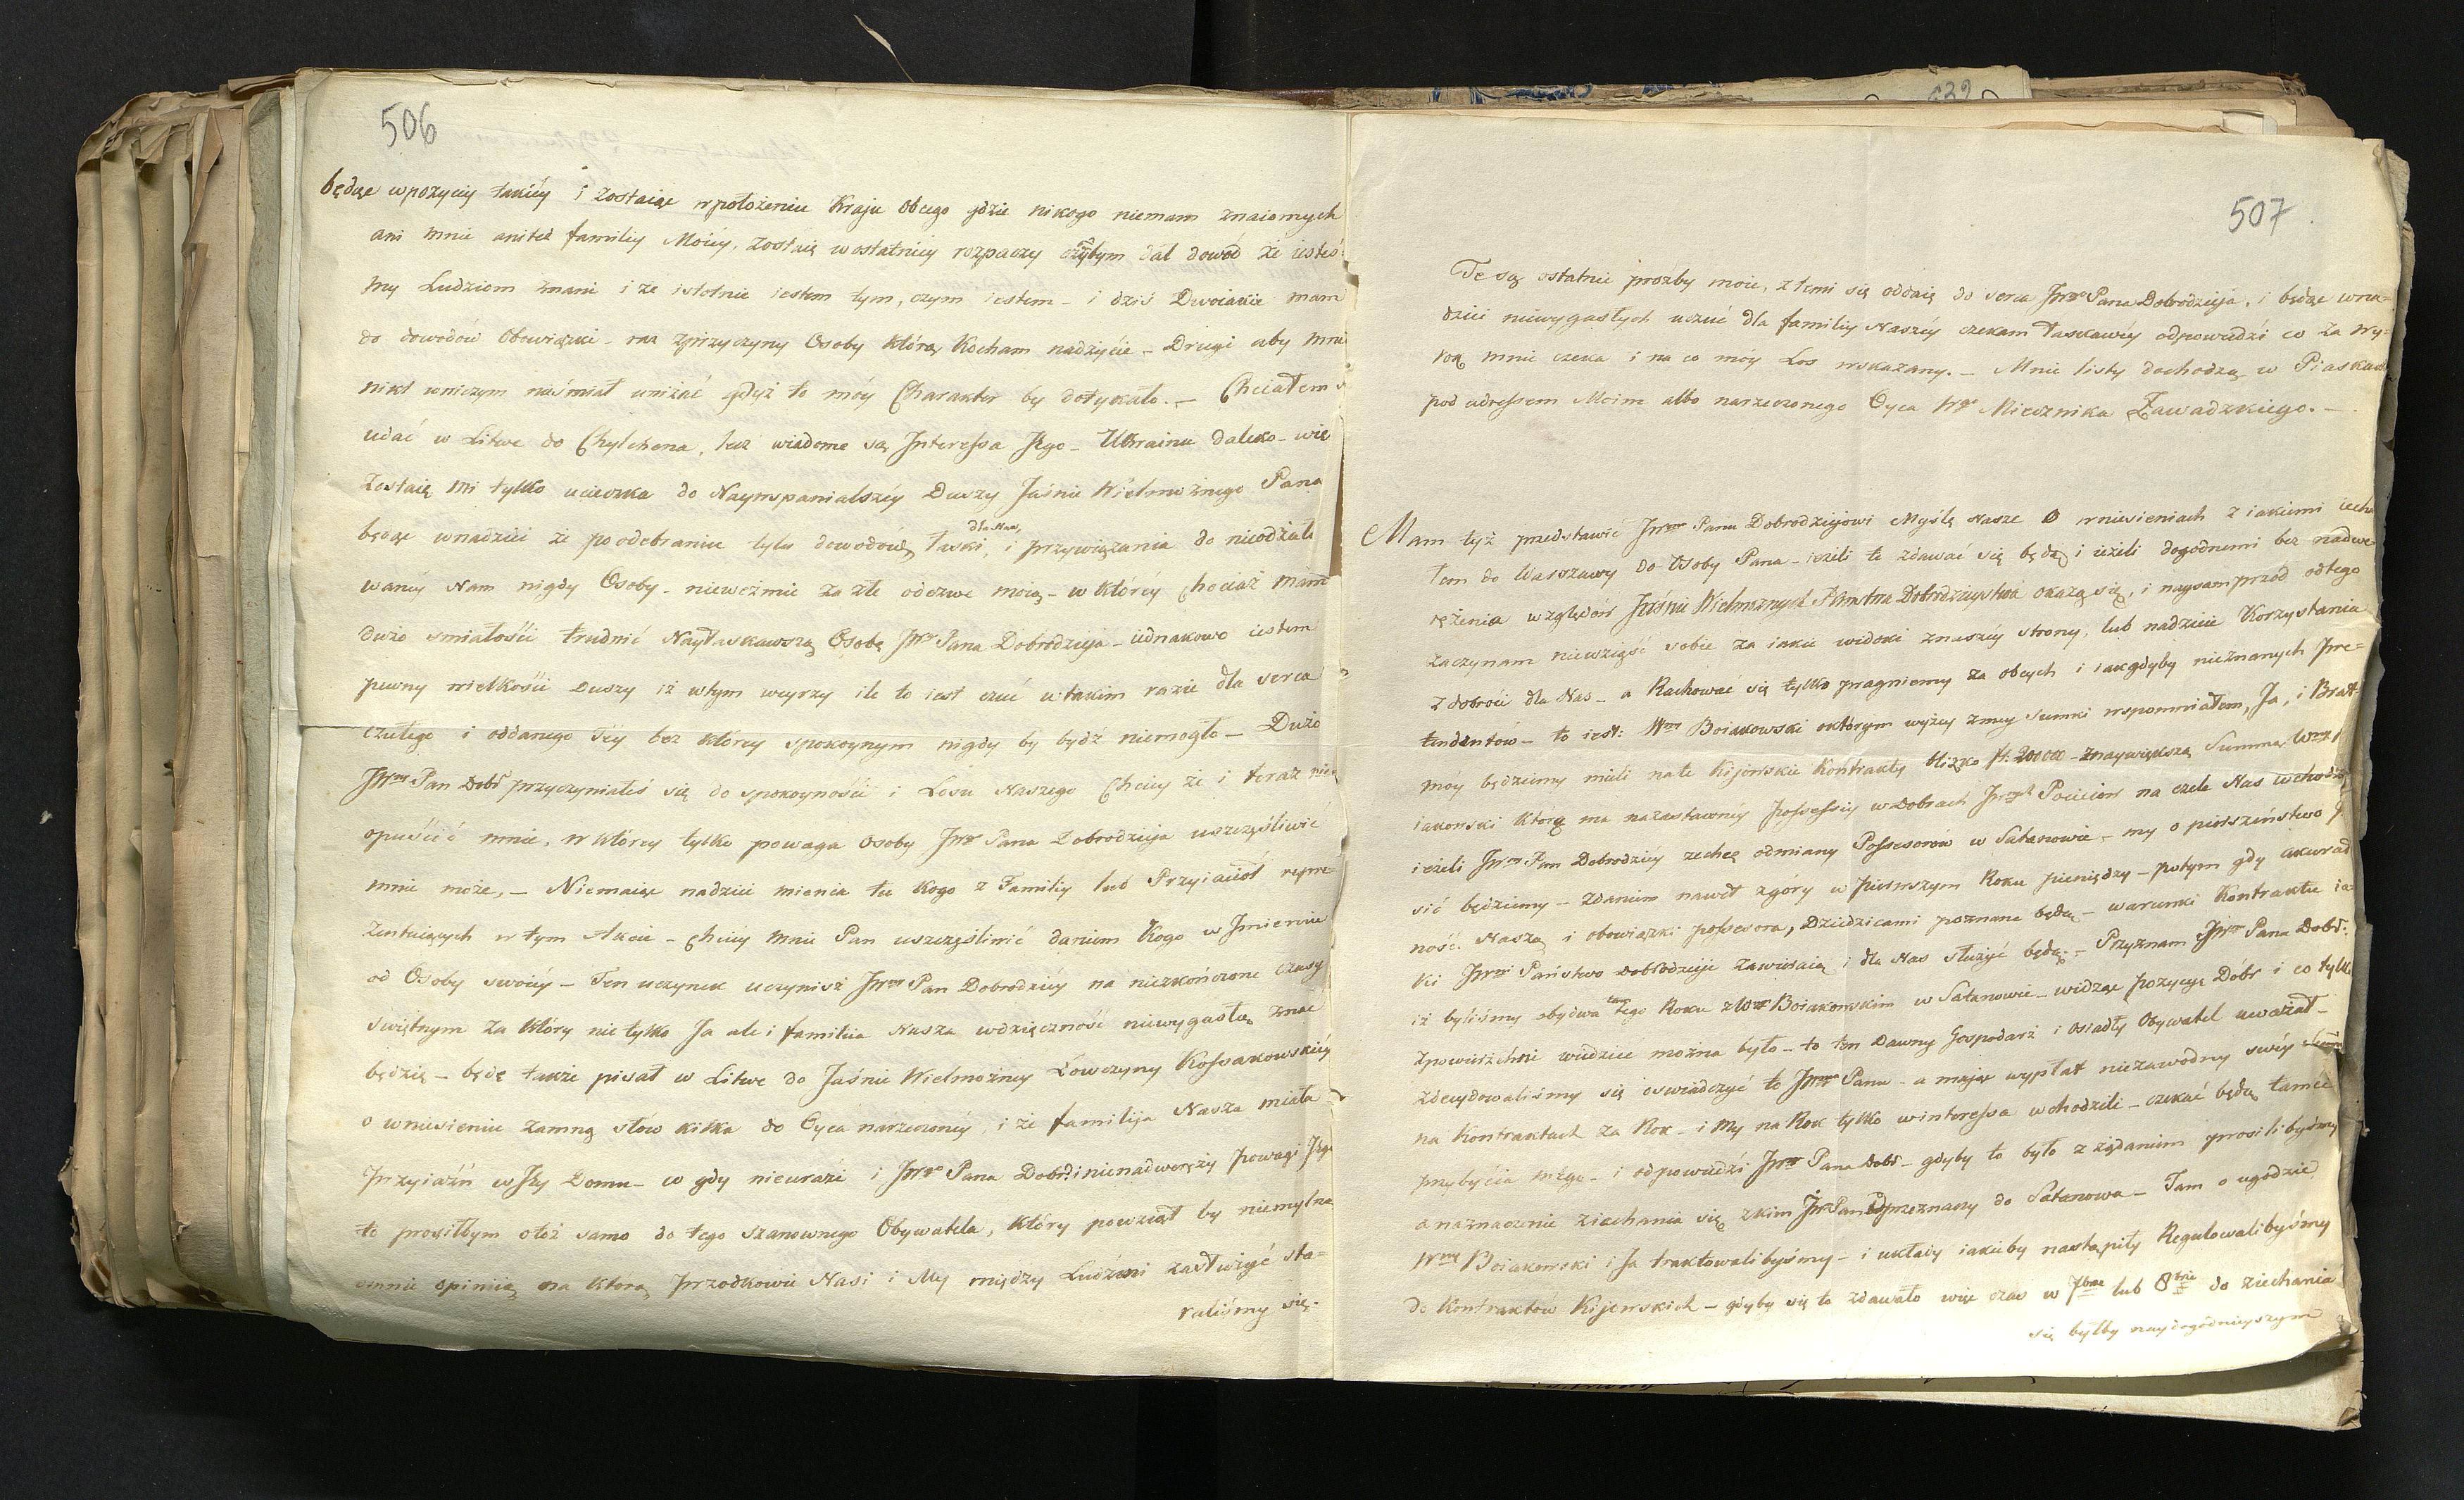 506
będąc wpozycyi takiéy i zostaiąc wpołożeniu Kraju Obcego gdzie nikogo niemam znaiomych
ani mnie aniteż familiy Moiéy, zostaię wostatniey rozpaczy czybym dał dowód że iesteś-
my Ludziom znani i że istotnie iestem tym, czym iestem – i dziś Dwoiakie mam
do dowodów Obowiązki – raz zprzyczyny Osoby którą Kocham nadżycie – Drugi aby mnie
nikt wniczym nieśmiał uniżać gdyż to móy Charakter by dotykało. – Chciałem
udać w Litwe do Chylchena, lecz wiadome są Interessa Jego – Ukraina daleko – więc
Zostaię mi tylko ucieczka do Naywspanialszéy Duszy Jaśnie Wielmożnego Pana
będąc wnadziei że poodebraniu tylu dowodów łaski, dla Nas, i przywiązania do nieodżało
wanéy Nam nigdy Osoby – nieweźmie za złe odezwe moią – w któréy chociaż mam
dużo smiałości trudnić Nayłaskawszą Osobę JWo Pana Dobrodzieja – iednakowo iestem
pewny wielkości Duszy iż wtym weyrzy ile to iest czuć w takim razie dla serca
czułego i oddanego Jéy bez któréy spokoynym nigdy by bydź niemogło – Dużo
JWny Pan Dobr przyczyniałeś się do spokoyności i Losu Naszego Chciey że i teraz nie
opuścić mnie, w któréy tylko powaga osoby JWo Pana Dobrodzieja uszczęśliwić
mnie może, – Niemaiąc nadziei mienia tu kogo z Familiy lub Przyiaciół repre-
zentuiących w tym Akcie – chciéy mnie Pan uszczęśliwić daniem Kogo w Jmieniu
od Osoby swoiéy – Ten uczynek uczynisz JWny Pan Dobrodziéy na niezkończone czasy
świętnym za który nie tylko Ja ale i familia Nasza wdzięczność niewygasłą znać
będzię – będę także pisał w Litwe do Jaśnie Wielmożney Łowczyny Kossakowskiéy
o wniesienie zamną słów kilka do Oyca narzeczonéy i że familija Nasza miała
Przyiaźń w Jéy Domu – co gdy nieurazi i JWo Pana Dobr: i nienadweręży powagi Jego
to prosiłbym otoż samo do tego szanownego Obywatela, który powziął by niemylną
omnie opinią na ktorą Przodkowie Nasi i My między Ludźmi zasłużyć sta-
raliśmy się.
507
Te są ostatnie prozby moie, z temi się oddaię do serca JWo Pana Dobrodzieja, i będąc wna-
dziei niewygasłych uczuć dla familiy Naszéy czekam łaskawéy odpowiedzi co za Wy-
rok mnie czeka i na co móy Los wskazany. – Mnie listy dochodzą w Piaskach
pod adressem Moim albo narzeczonego Oyca Wgo Miecznika Zawadzkiego. –
Mam tyż przedstawić JWmu Panu Dobrodziejowi Myślę Nasze o wniesieniach z iakiemi iecha
łem do Warszawy do Osoby Pana – ieżeli te zdawać się będą i ieżeli dogodnemi bez nadwe-
rężenia względów Jaśnie Wielmożnych Państwa Dobrodzieystwa okażą się, i naysamprzód odtego
zaczynam niewziąść sobie za iakie widoki znaszéy strony, lub nadzieie Korzystania
z dobroci dla Nas – a Rachować się tylko pragniemy za obcych i iakgdyby nieznanych pre-
tendentów – to iest: Wny Boiakowski októrym wyżey zmey sumki wspomniałem, Ja, i Brat
móy będziemy mieli nate Kijowskie Kontrakty blizko 200000 – znaywiększą Summą Wny
iakowski którą ma nazastawnéy possessiy w Dobrach JWnych Pociejow na czele Nas wchodzi
ieżeli JWny Pan Dobrodziéy zechcę odmiany Possesorów w Satanowie – my o pierszeństwo
sić będziemy – Zdaniem nawet zgóry w pierwszym Roku pieniędzy – potym gdy akurad
ność. Naszą i obowiązki possesora, Dziedzicami poznane będą – warunki Kontraktu ia-
kie JWni Państwo Dobrodzieje zawieraią i dla Nas służyć będą. – Przyznam JWo Pana Dobr:
iż byliśmy obydwa tego Roku zWm Boiakowskim w Satanowie – widząc pozycyą Dóbr i co tylko
zpowierzchni widzieć można było – to ten Dawny Gospodarz i osiadły Obywatel uważał –
zdecydowaliśmy się oswiadczyć to JWmu Panu – a maiąc wypłat niezawodny swéy
na Kontraktach za Rok – i My na Rok tylko winteressa wchodzili – czekać będą tamci
przybycia mégo – i odpowiedzi JWo Pana Dobr – gdyby to było z żądaniem prosilibyśmy
o naznaczenie ziechania się zkim JWPan Dyprzeznaczy do Satanowa – Tam o ugodzie
Wny Boiakowski i Ja traktowalibyśmy – i układy iakieby nastąpiły Regulowalibyśmy
do Kontraktów Kijowskich – gdyby się to zdawało więc czas w 7bre lub 8bre do ziechania
się byłby naydogodnieyszym